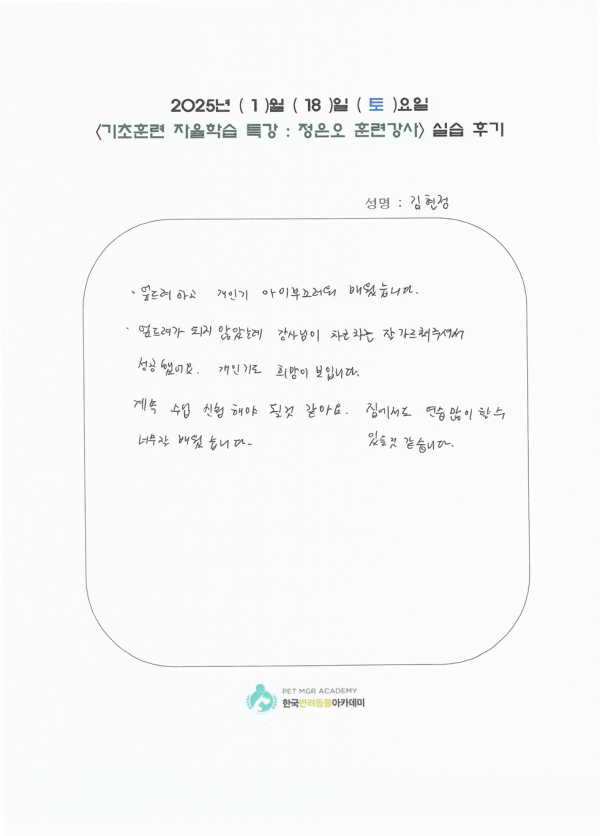 2025년 ( 1 )월 ( 18 )일 ( 토 )요일
<기초훈련 자율학습 특강 : 정은오 훈련강사> 실습 후기
성명 : 김현정
· 엎드려 하고 개인기 아이부끄러워 배웠습니다.
· 엎드려가 되지 않았는데 강사님이 차근차근 잘 가르쳐주셔서
성공했어요. 개인기도 희망이 보입니다.
계속 수업 신청해야 될것 같아요. 집에서도 연습 많이 할 수
너무잘 배웠습니다. 있을것 같습니다.
PET MGR ACADEMY
한국반려동물아카데미